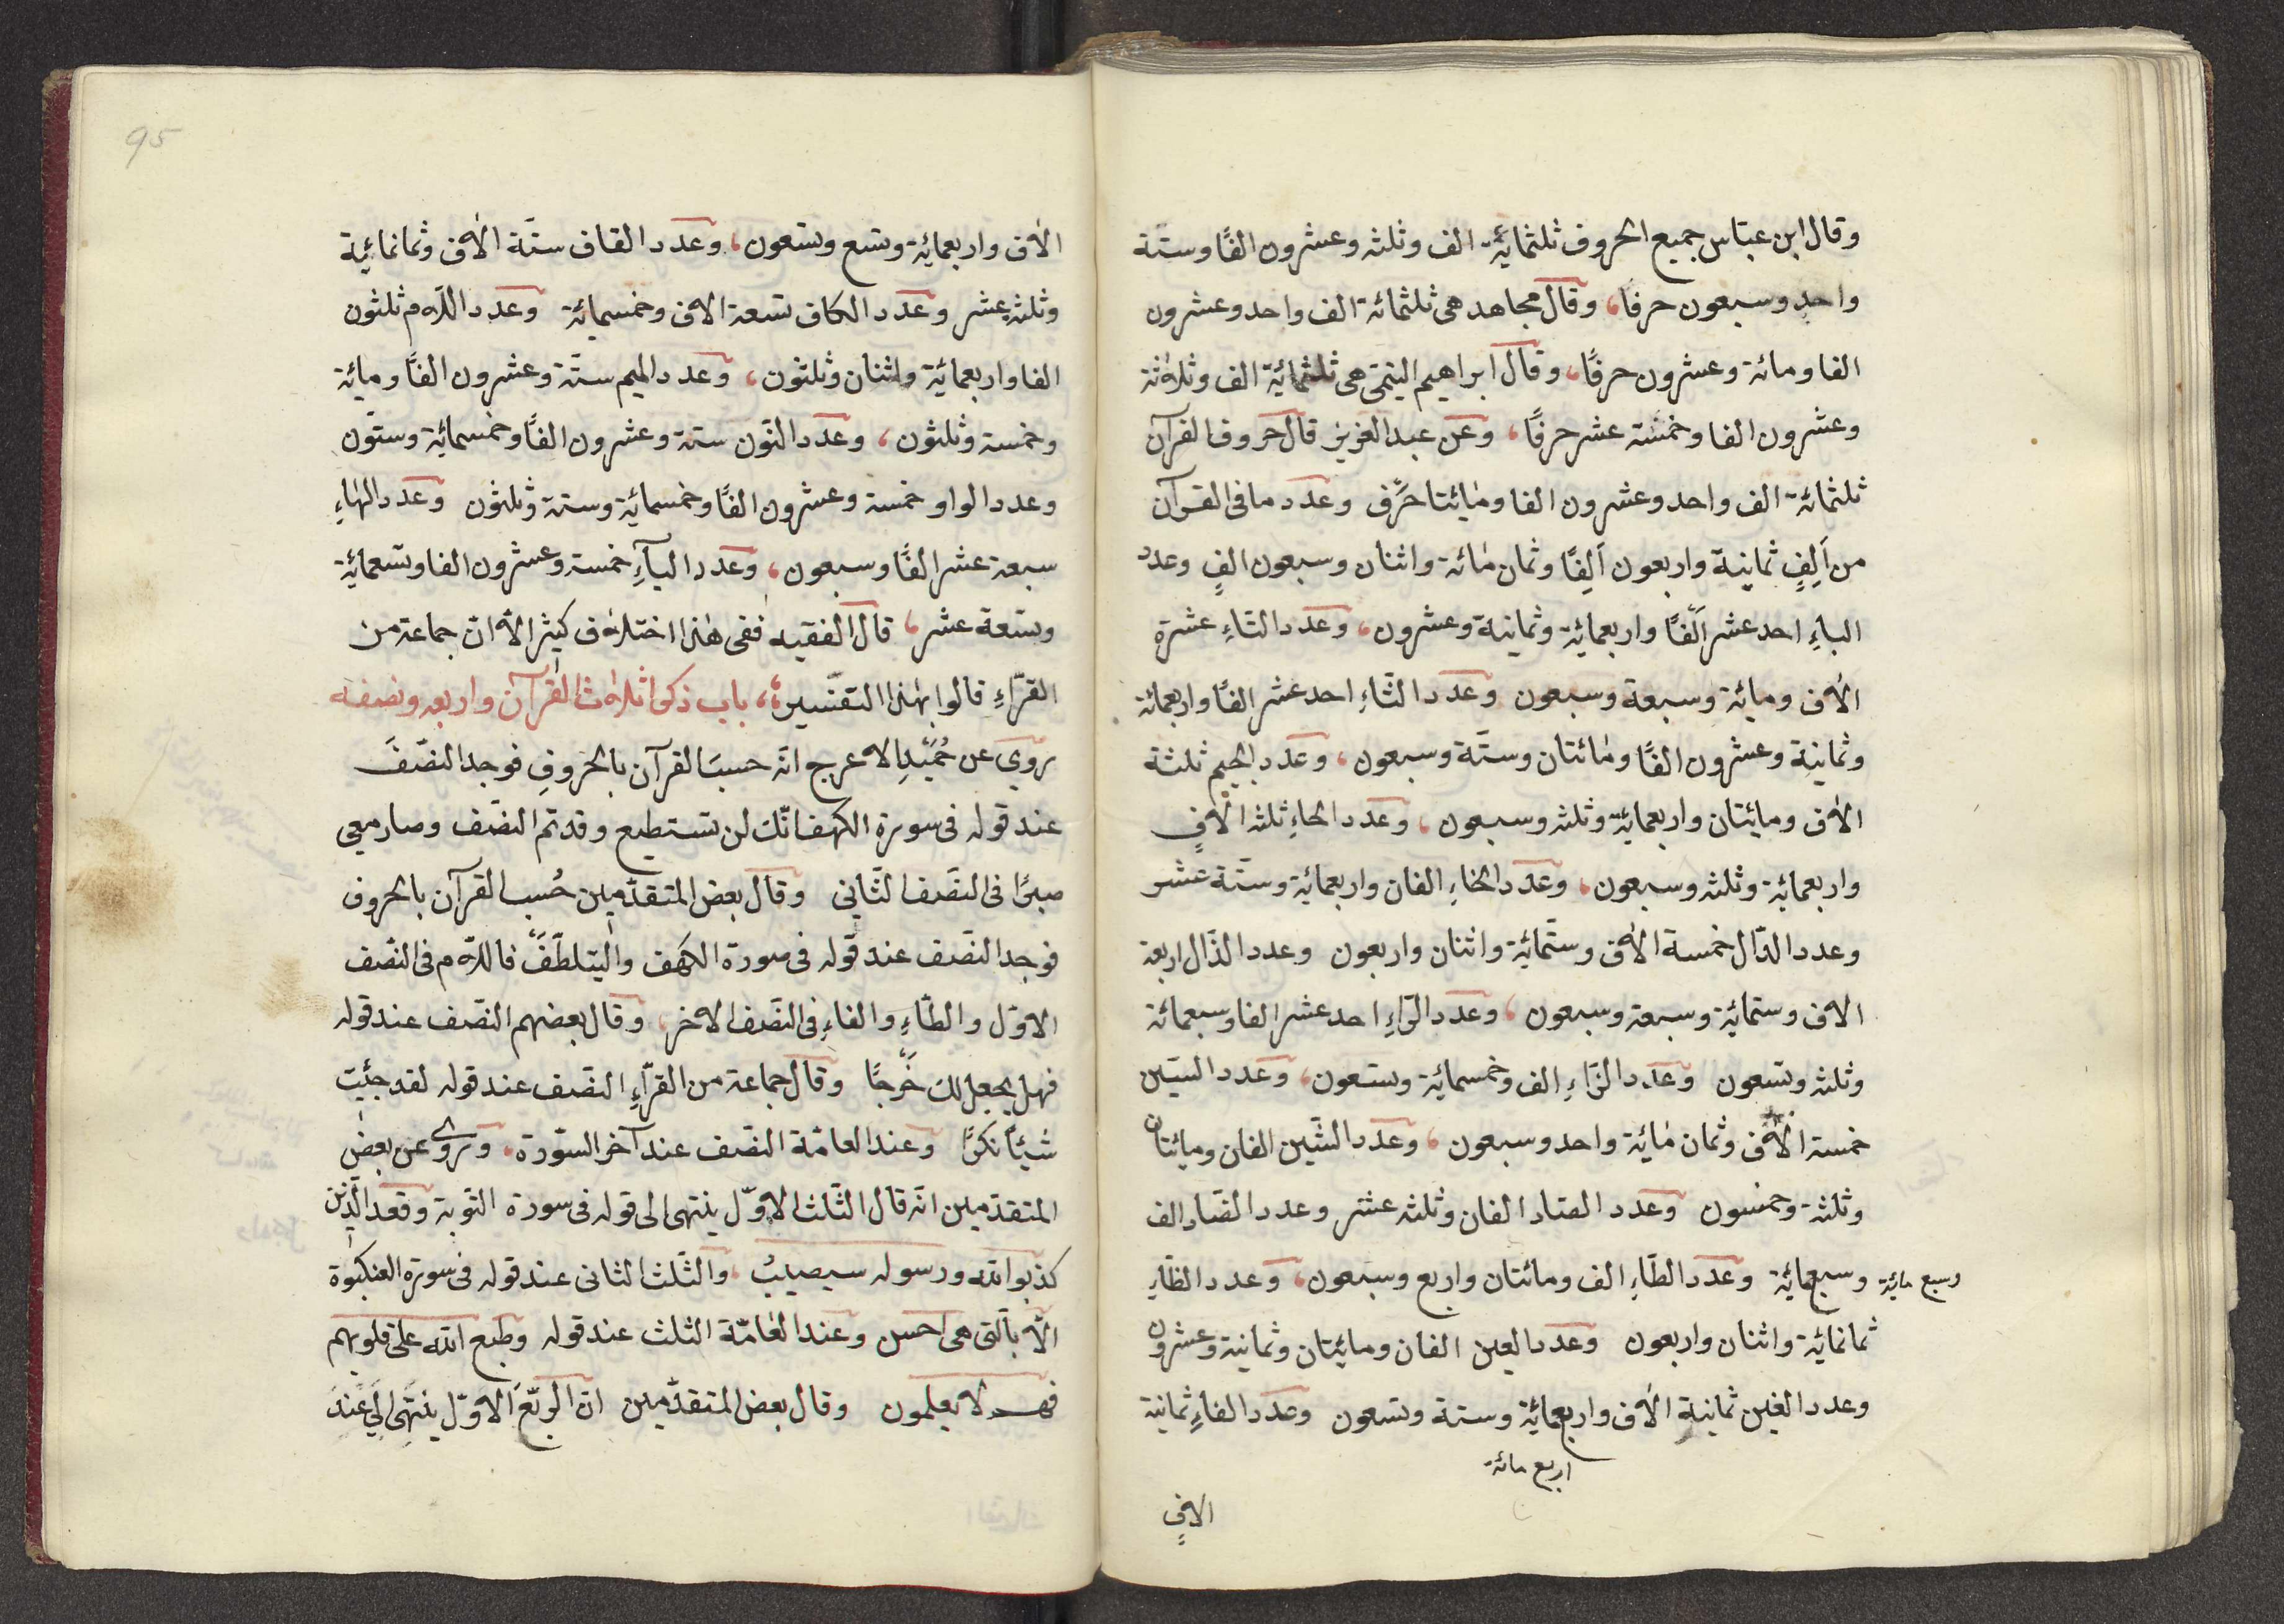 وقال ابن عبّاس جميع الحروف ثلثمائة الف وثلثه وعشرون الفًا وستّة
واحد وسبعون حرفًا، وقال مجاهد هى ثلثمائة الف واحد وعشرون
الفا ومائة وعشرون حرفًا، وقال ابراهيم التيمّى هى ثلثمائة الف وثلاثة
وعشرون الفا وخمسّة عشر حرفًا، وعن عبد العزيز قال حروف القرآن
ثلثمائة الف واحد وعشرون الفا ومائيتا حرف وعدد ما فى القرآن
من اَلِفٍ ثمانية واربعون اَلِفًا وثمان مائة واثنان وسبعون الفٍ وعدد
الباءِ احد عشر اَلفًا واربعمائة وثمانية وعشرون، وعدد التاءِ عشرة
الاٰف ومائة وسبعة وسبعون وعدد الثّاءِ احد عشر الفًا واربعمائة
وثمانية وعشرون الفًا ومٰائتان وستّة وسبعون، وعدد الجيم ثلثة
الاٰف ومائيتان واربعمائة وثلثه وسبعون، وعدد الحاءِ ثلثه الاٰفٍ
واربعمائة وثلثه وسبعون، وعدد الخاءِ الفان واربعمائة وستّة عشر
وعدد الدّال خمسة الاٰف وستّمائة واثنان واربعون وعدد الذّال اربعة
الاف وستمائة وسبعة وسبعون، وعدد الرّاءِ احد عشر الفا وسبعمائة
وثلثه وتسعون وعدد الزّاءِ الف وخمسمائة وتسعون، وعدد السيّن
خمسة الاٰف وثمان مٰائة واحد وسبعون، وعدد الشّين الفان ومائيتان
وثلثة وخمسون وعدد الصّاد الفان وثلثه عشر وعدد الضّاد الف
وسبعمائة وعدد الطّاءِ الف ومائتان واربع وسبعون، وعدد الظّاءِ
وسبع مائة
ثمانمائة واثنان واربعون وعدد العين الفان ومائيتان وثمانية وعشرون
وعدد الغين ثمانية الاٰف واربعمائة وستة وتسعون وعدد الفاءِ ثمانية
اربع مائة
الافٍ
95
الاٰف واربعمائة وتسع وتسعون، وعدد القاف ستّة الاٰف وثمانمائية
وثلثه عشر وعدد الكاف تسعة الاف وخمسمائة وعدد اللاّم ثلثون
الفا واربعمائة واثنان وثلثون، وعدد الميم ستّة وعشرون الفًا ومائة
وخمسة وثلثون، وعدد النّون ستة وعشرون الفًا وخمسمائة وستّون
وعدد الواو خمسة وعشرون الفًا وخمسمائة وستة وثلثون وعدد الهاءِ
سبعة عشر الفًا وسبعون، وعدد اليآءِ خمسة وعشرون الفا وتسعمائة
وتسعة عشر، قال الفقيه ففى هٰذا اختلاف كثير الاّ انّ جماعة من
القرّاءِ قالوا بهٰذا التفسير، باب ذكر اثلاث القرآن واربعه ونصفه
روي عن حُمَيْدِ الاعرج انّه حسبَ القرآن بالحُروفِ فوجد النصّفَ
عند قوله فى سورة الكهف انّك لن تستطيع وقد تم النصّف وصار معى
صبرًا فى النصّف الثّانى وقال بعض المتقدّمين حُسب القرآن بالحروف
فوجد النصّف عند قوله فى سورة الكهف وليتلطّفْ فاللاّم فى النّصف
الاوّل والطّاءِ والفاءِ فى النصّف الاخر، وقال بعضهم النصّف عند قوله
فهل يجعل لك خَرْجًا وقال جماعة من القرّاءِ النصّف عند قوله لقد جئت
شيئًا نكرًا وعند العامّة النصّف عند آخر السّورة، وروى عن بعض
المتقدّمين انّه قال الثّلث الاوّل ينتهى الى قوله فى سورة التوبة وقعد الّذين
كذبوا الله ورسوله سيصيبُ، والثّلث الثانى عند قوله فى سورة العنكبوة
الاّ بالّتى هى احسن وعند العامّة الثلث عند قوله وطبع الله على قلوبهم
فهم لا يعلمون وقال بعض المتقدّمين انّ الرّبعَ الاوّل ينتهِى اِلى عندَ